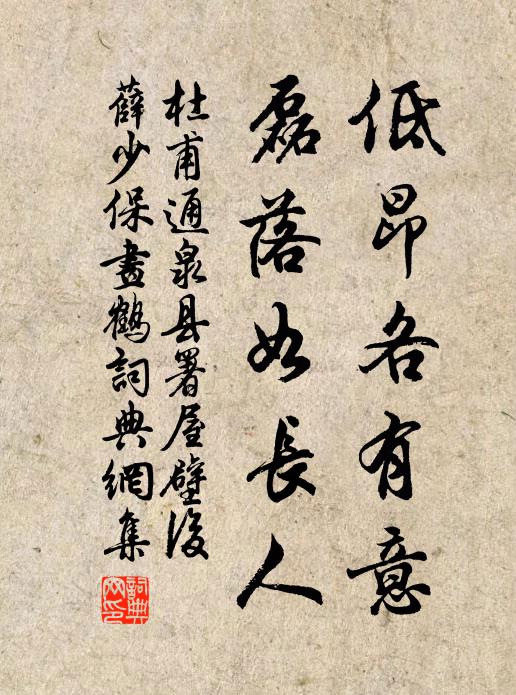 低昂各有意
磊落如長人
杜甫通泉县署屋壁後
薛少保畫鶴詞典網集
詞典网印